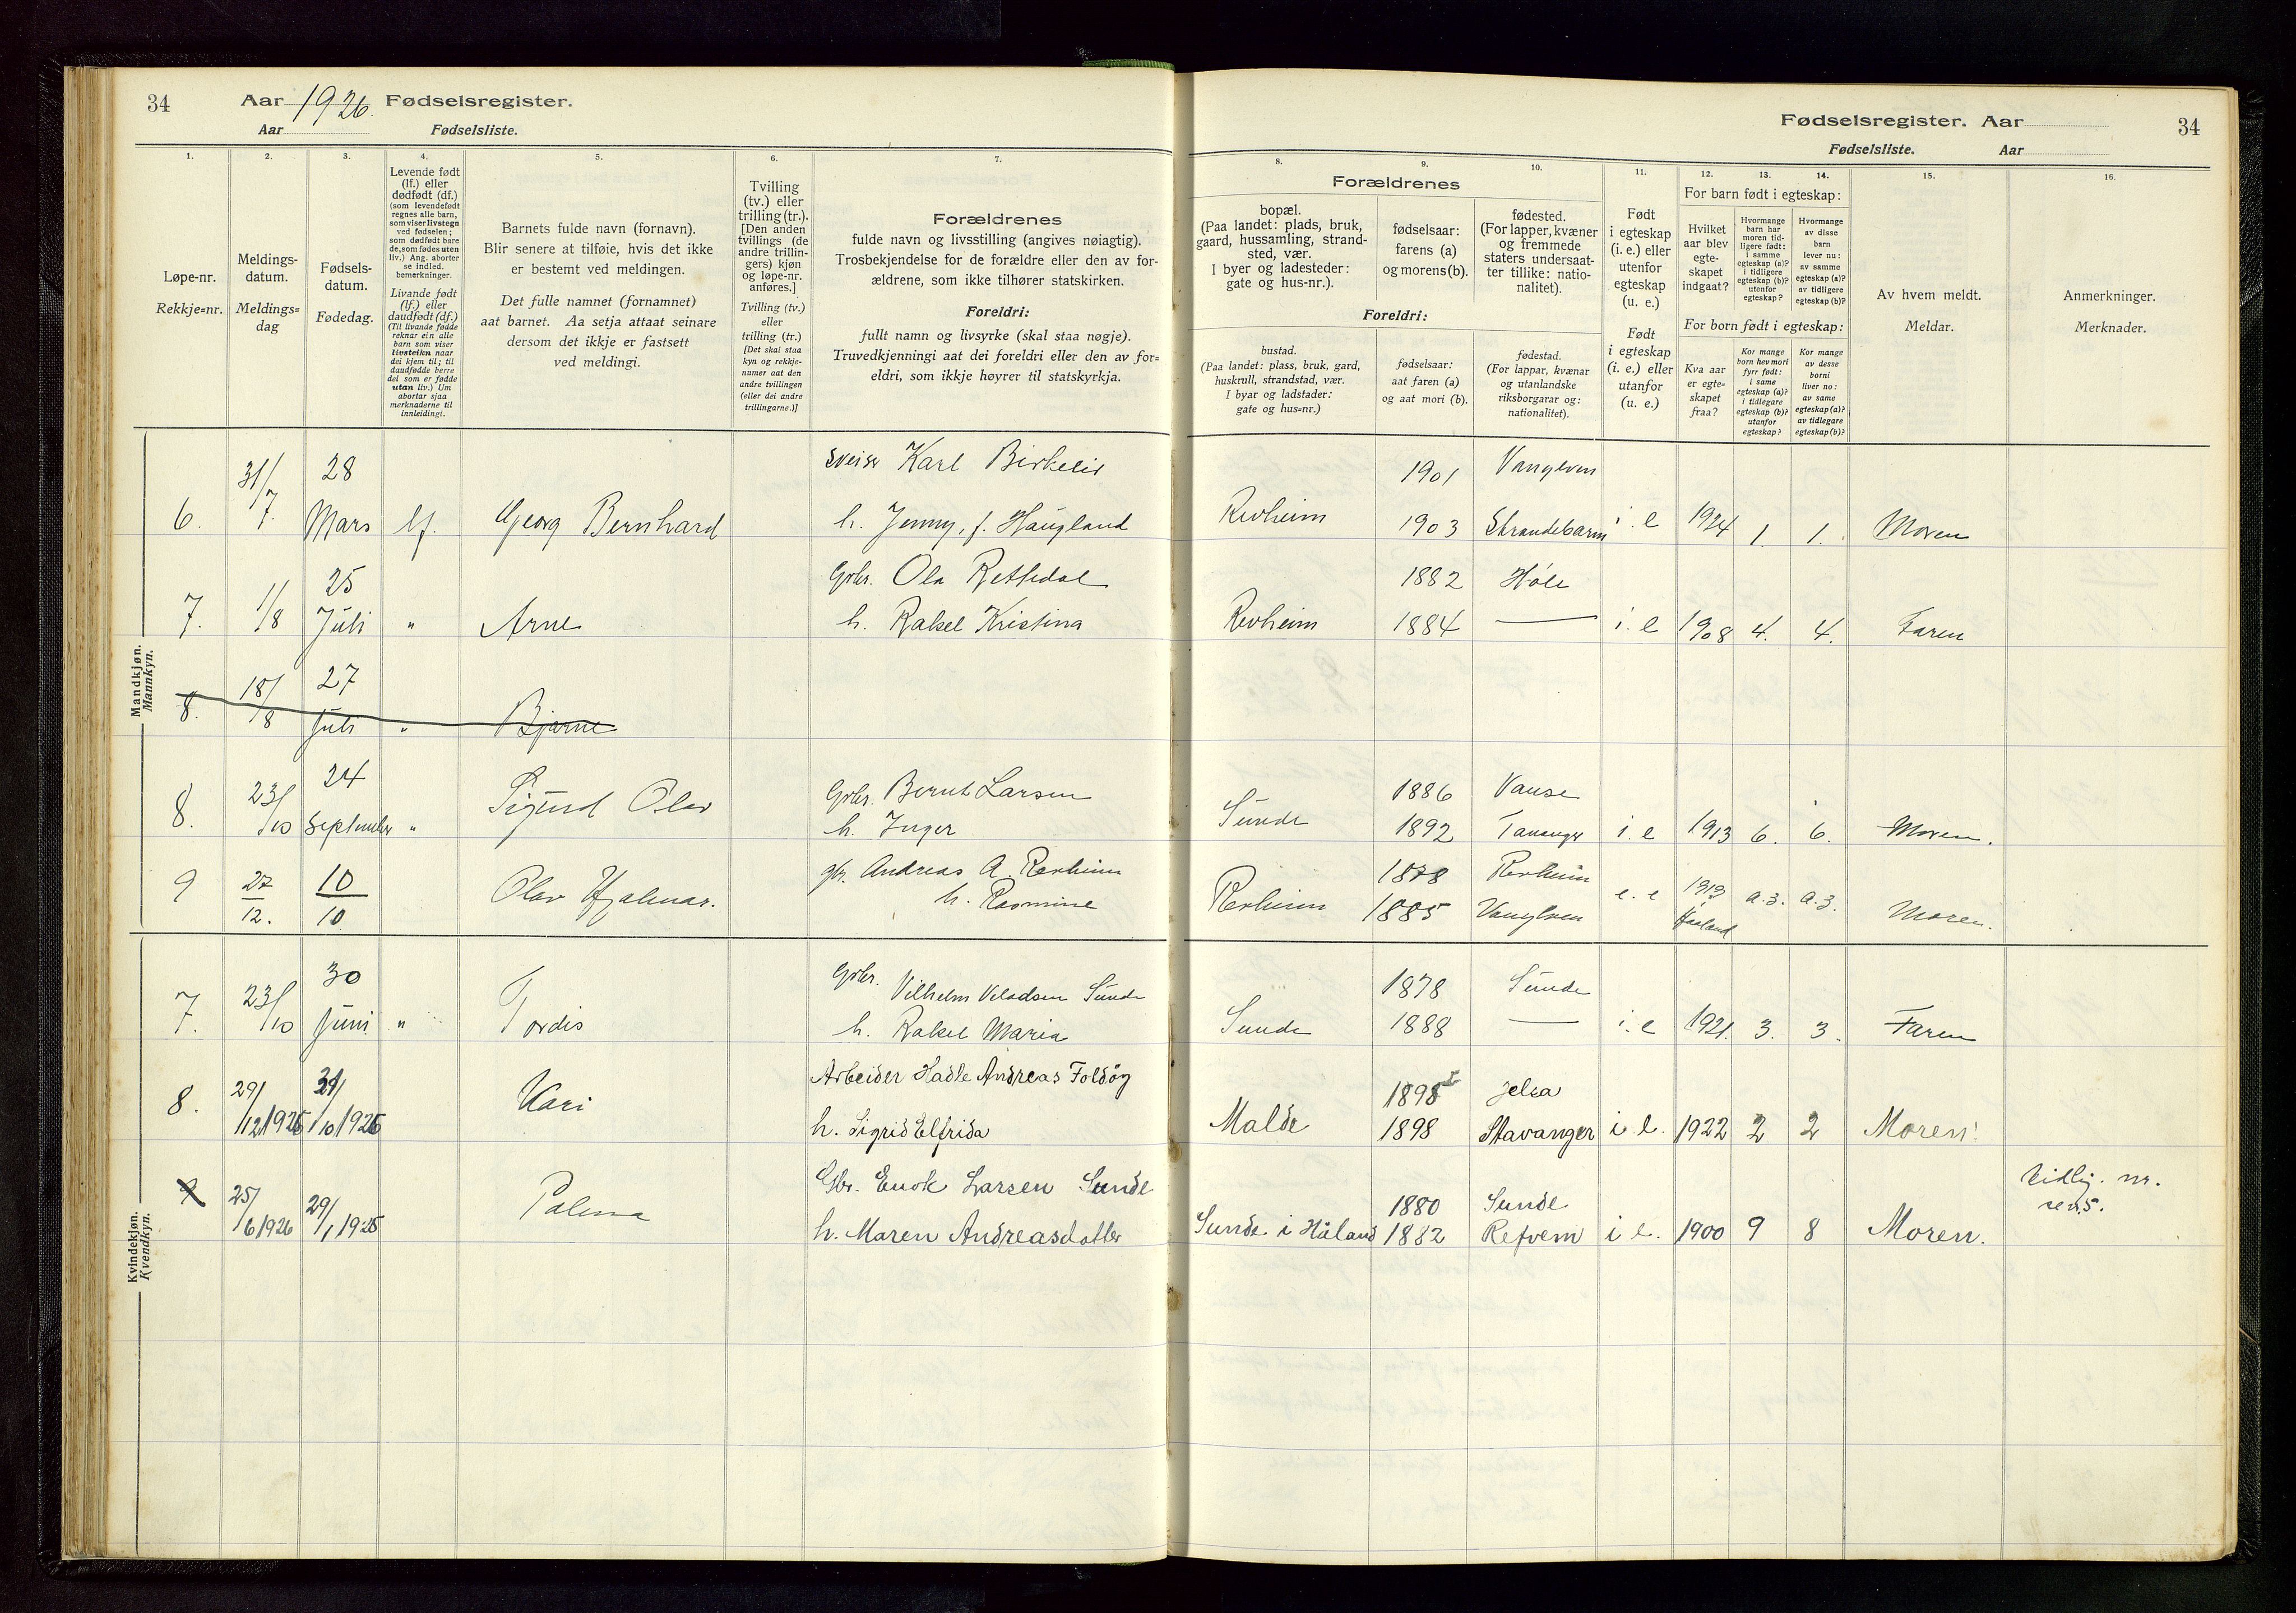 34 Aar 1926. Fødselsregister.
Aar Fødselsliste.
Fødselsregister. Aar 34
Fødselsliste. Aar
1. 2. 3. 4. 5. 6. 7. 8. 9. 10. 11. 12. 13. 14. 15. 16.
Løpe-nr.
Rekkje=nr.
Meldings-
datum.
Meldings=
dag
Fødsels-
datum.
Fødedag.
Levende født
(lf.) eller
dødfødt (df.)
(som levendefødt
regnes alle barn,
som viser livstegn
ved fødselen;
som dødfødt bare
de, som fødes uten
liv.) Ang. aborter
se indled.
bemerkninger.
Livande født
(lf.) eller
daudfødt (df.)
(Til livande fødde
reknar ein alle
barn som viser
livsteikn naar
dei kjem til; til
daudfødde berre
dei som er fødde
utan liv.) Um
abortar sjaa
merknaderne til
innleidingi.
Barnets fulde navn (fornavn).
Blir senere at tilføie, hvis det ikke
er bestemt ved meldingen.
Det fulle namnet (fornamnet)
aat barnet. Aa setja attaat seinare
dersom det ikkje er fastsett
ved meldingi.
Tvilling
(tv.) eller
trilling (tr.).
[Den anden
tvillings (de
andre trillin-
gers) kjøn
og løpe-nr.
anføres.]
Tvilling (tv.)
eller
trilling (tr.)
[Det skal staa
kyn og rekkje-
numer aat den
andre tvillingen
(eller dei andre
trillingarne.)]
Forældrenes
fulde navn og livsstilling (angives nøiagtig).
Trosbekjendelse for de forældre eller den av for-
ældrene, som ikke tilhører statskirken.
Foreldri:
fullt namn og livsyrke (skal staa nøgje).
Truvedkjenningi aat dei foreldri eller den av for=
eldri, som ikkje høyrer til statskyrkja.
Forældrenes
bopæl.
(Paa landet: plads, bruk,
gaard, hussamling, strand-
sted, vær.
I byer og ladesteder:
gate og hus-nr.).
fødselsaar:
farens (a)
og morens (b).
fødested.
(For lapper, kvæner
og fremmede
staters undersaat-
ter tillike: natio-
nalitet).
Foreldri:
bustad.
(Paa landet: plass, bruk, gard,
huskrull, strandstad, vær.
I byar og ladstader:
gate og hus=nr.)
fødselsaar:
aat faren (a)
og aat mori (b).
fødestad.
(For lappar, kvænar
og utanlandske
riksborgarar og:
nationalitet).
Født
i egteskap
(i. e.) eller
utenfor
egteskap
(u. e.)
Født
i egteskap
(i. e.) eller
utanfor
egteskap
(u. e.)
For barn født i egteskap:
Hvilket
aar blev
egte-
skapet
indgaat?
Hvormange
barn har
moren tid-
ligere født:
i samme
egteskap (a)?
i tidligere
egteskap (b)?
utenfor
egteskap?
Hvormange
av disse
barn
lever nu:
av samme
egteskap (a)?
av tidligere
egteskap (b)?
For born født i egteskap:
Kva aar
er egte=
skapet
fraa?
Kor mange
born hev mori
fyrr født:
i same
egteskap (a)?
i tidlegare
egteskap (b)?
utanfor
egteskap?
Kor mange
av desse
borni
liver no:
av same
egteskap (a)?
av tidlegare
egteskap (b)?
Av hvem meldt.
Meldar.
Anmerkninger.
Merknader.
Mandkjøn.
Mannkyn.
31/7. 28 sveiser Karl Birkelid 1901 Vanylven
6. Mars lf. Georg Bernhard h. Jenny, f. Haugland Revheim 1903 Strandebarm i. e 1924 1. 1. Moren
25 Grbr. Ola Rettedal 1882 Höle
7. 1/8 Juli " Arne h. Rakel Kristina Revheim 1884 — i. e 1908 4. 4. Faren
18/8 27
8. Juli " Bjarne
23/10 24 Grbr. Bernt Larsen 1886 Vanse
8. September " Sigurd Olav h. Inger Sunde 1892 Tananger i. e 1913 6. 6. Moren.
9 27/12. 10/10 Olav Hjalmar. gbr. Andreas A. Revheim 1878 Revheim
h. Rasmine Revheim 1885 Vanylven e. e 1913 Haaland a. 3. a. 3. Moren.
Kvindekjøn.
Kvendkyn.
30 Grbr. Vilhelm Sunde 1878 Sunde
7. 23/10 Juni " Tordis h. Rakel Maria Sunde 1888 — i. e 1921. 3. 3. Faren
Arbeider Hadle Andreas Foldöy 1898 Jelsa
8. 29/12 1926 /10 1926 Kari h. Sigrid Elfrida Malde 1898 Stavanger i e. 1922 2 2 Moren.
Gbr. Enok Larsen Sunde 1880 Sunde
9 25/6 1926 29/1 1925 Palma h. Maren Andreasdatter Sunde i Håland 1882 Refvem i e. 1900 9 8 Moren.